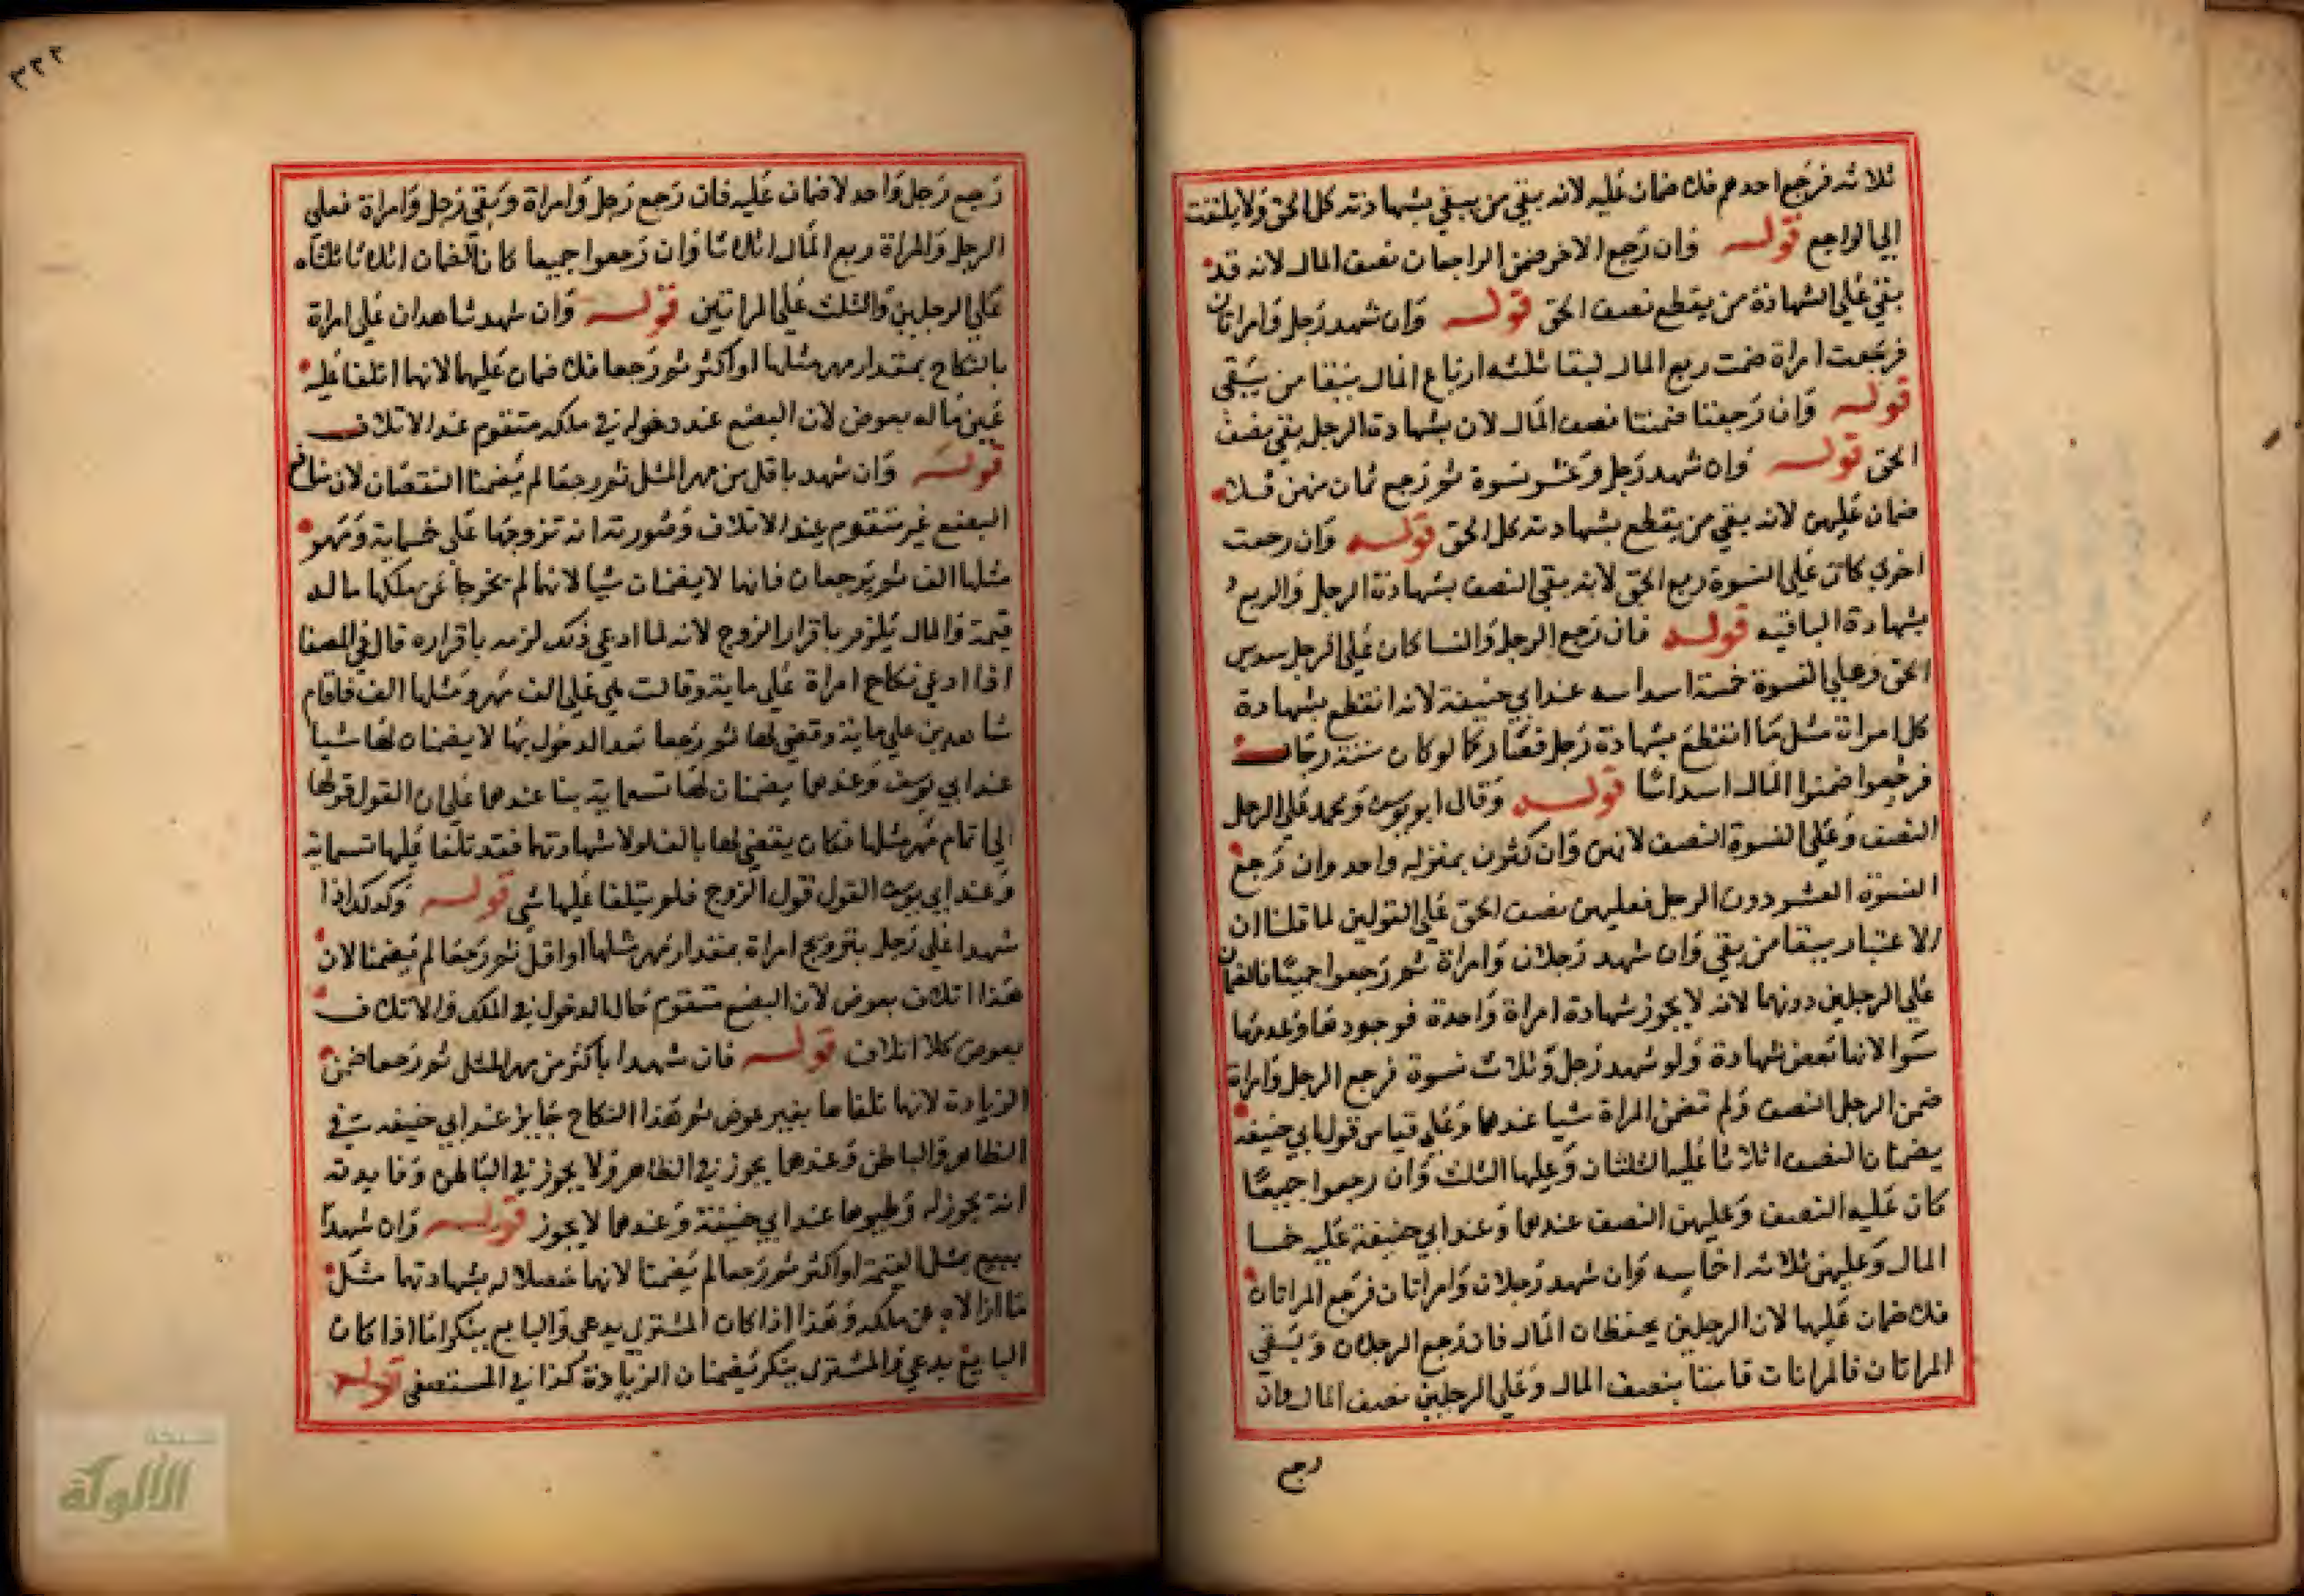 ثلاثه فرجع احدهم فلا ضمان عليه لانه بقي من يبقي بشهادته كل الحق ولا يلتفت
الي الراجع قوله وان رجع الاخر ضمن الراجعان نصف المال لانه قد
بقي علي الشهادة من يقطع نصف الحق قوله وان شهد رجل وامراتان
فرجعت امراة ضمنت ربع المال لبقا ثلثه ارباع المال ببقا من يبقي
قوله وان رجعتا ضمنتا نصف المال لان بشهادة الرجل بقي نصف
الحق قوله وان شهد رجل وعشر نسوة ثم رجع ثمان منهن فلا
ضمان عليهن لانه بقي من يقطع بشهادته كل الحق قوله وان رجعت
اخري كان علي النسوة ربع الحق لانه بقي النصف بشهادة الرجل والربع
بشهادة الباقيه قوله فان رجع الرجل والنسا كان علي الرجل سدس
الحق وعلي النسوة خمسة اسداسه عند ابي حنيفة لانه انقطع بشهادة
كل امراة مثل ما انقطع بشهادة رجل فصار كما لو كان ستة رجال
فرجعوا ضمنوا المال اسداسا قوله وقال ابو يوسف ومحمد علي الرجل
النصف وعلي النسوة النصف لانهن وان كثرن بمنزله واحد وان رجع
النسوة العشر دون الرجل فعليهن نصف الحق علي القولين لما قلنا ان
الاعتبار ببقا من بقي وان شهد رجلان وامراة ثم رجعوا جميعا فالضمان
علي الرجلين دونها لانه لا يجوز شهادة امراة واحدة فوجودها وعدمها
سوا لانها بعض شهادة ولو شهد رجل وثلاث نسوة فرجع الرجل وامراة
ضمن الرجل النصف ولم تضمن المراة شيا عندهما وعلي قياس قول ابي حنيفه
يضمنان النصف اثلاثا عليه الثلثان وعليها الثلث وان رجعوا جميعا
كان عليه النصف وعليهن النصف عندهما وعند ابي حنيفة عليه خمسا
المال وعليهن ثلاثه اخماسه وان شهد رجلان وامراتان فرجع المراتان
فلا ضمان عليهما لان الرجلين يحفظان المال فان رجع الرجلان وبقي
المراتان فالمراتان قامتا بنصف المال وعلي الرجلين نصف المال وان
رجع
٣٢٢
رجع رجل واحد لا ضمان عليه فان رجع رجل وامراة وبقي رجل وامراة فعلي
الرجل والمراة ربع المال اثلاثا وان رجعوا جميعا كان الضمان اثلاثا ثلثاه
علي الرجلين والثلث علي المراتين قوله وان شهد شاهدان علي امراة
بالنكاح بمقدار مهر مثلها او اكثر ثم رجعا فلا ضمان عليهما لانهما اتلفا عليه
عين ماله بعوض لان البضع عند دخوله في ملكه متقوم عند الاتلاف
قوله وان شهد باقل من مهر المثل ثم رجعا لم يضمنا النقصان لان منافع
البضع غير متقوم عند الاتلاف وصورته انه تزوجها علي خمسماية ومهر
مثلها الف ثم يرجعان فانهما لا يضمنان شيا لانهما لم يخرجا عن ملكها ما له
قيمة والمال يلزم باقرار الزوج لانه لما ادعي ذلك لزمه باقراره قال في المصفا
اذا ادعي نكاح امراة علي ماية وقالت بلي علي الف مهر ومثلها الف فاقام
شاهدين علي ماية وقضي لها ثم رجعا بعد الدخول بها لا يضمنان لها شيا
عند ابي يوسف وعندهما يضمنان لها تسعماية بنا عندهما علي ان القول قولها
الي تمام مهر مثلها فكان يقضي لها بالف لولا شهادتهما فقد تلفا عليها تسعماية
وعند ابي يوسف القول قول الزوج فلم يتلفا عليها شي قوله وكذلك اذا
شهدا علي رجل بتزويج امراة بمقدار مهر مثلها او اقل ثم رجعا لم يضمنا لان
هذا اتلاف بعوض لان البضع متقوم حال الدخول في الملك والاتلاف
بعوض كلا اتلاف قوله فان شهدا باكثر من مهر المثل ثم رجعا ضمن
الزيادة لانهما تلفاها بغير عوض ثم هذا النكاح جايز عند ابي حنيفه في
الظاهر والباطن وعندهما يجوز في الظاهر ولا يجوز في الباطن وفايدته
انه يجوز له وطيوها عند ابي حنيفة وعندهما لا يجوز قوله وان شهدا
ببيع بمثل القيمة او اكثر ثم رجعا لم يضمنا لانهما حصلا له بشهادتهما مثل
ما ازالاه عن ملكه وهذا اذا كان المشتري يدعي والبايع ينكر اما اذا كان
البايع يدعي والمشتري ينكر يضمنان الزيادة كذا في المستصفي قوله
شبكة
الألوكة